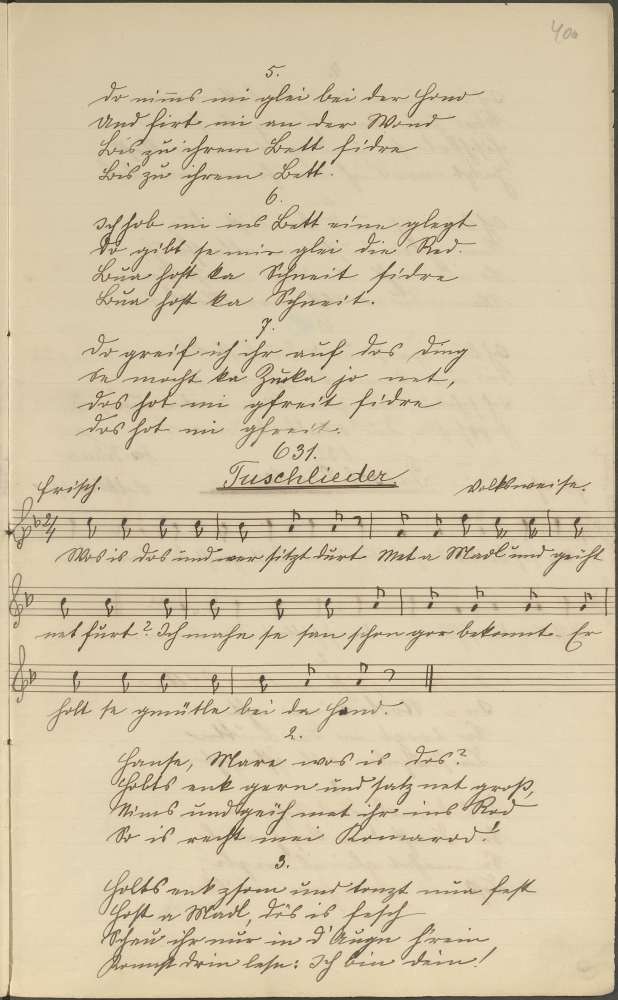 400
5.
Do nimms mi glei bei der Hond
Und firt mi an der Wond
Bis zu ihrem Bett fidre
Bis zu ihrem Bett.
6.
Ich hob mi ins Bett eine glegt
Do gibt se mir glei die Red.
Bua host ka Schneit fidre
Bua host ka Schneit.
7.
Do greif ich ihr auf dos Ding
Se mocht ka Zucka jo net,
dos hot mi gfreit fidre
dos hot mi gfreit.
631.
Tuschlieder.
Frisch. Volksweise.
Wos is dos und wer sitzt durt Met a Madl und geiht
net furt? Ich mahn se san schon gor bekonnt. Er
holt se gmütle bei da Hand.
2.
Hanse, Mare wos is dos?
Holts enk gern und satz net groß,
Nimms und geih met ihr ins Rod
So is recht mei Komarod!
3.
Holts enk zsom und tonzt nua fest
Host a Madl, dös is fesch
Schau ihr nur in d'Augn h'rein
Konnst drin lesn: Ich bin dein!